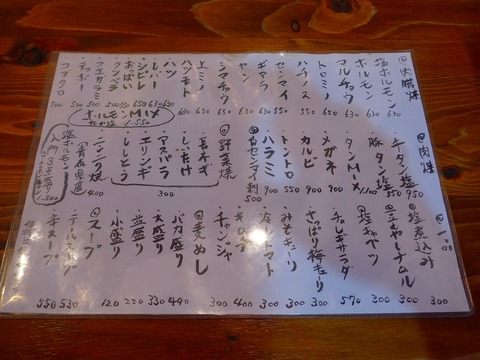 @内臓焼
・塩ホルモン 630
・ホルモン 630
・マルチョウ 630
・トロミノ 630
・ハチノス 650
・センマイ 650
・ギアラ 650
・ヤン 630
・シマチョウ 650
・上ミノ
・ハツモト 630
・ハツ 630
・レバー 630
・シビレ 650
・おっぱい 550
・ウルテ
・フエガラミ 500
・ネッボー 500
・コブクロ 500
ホルモンMIX
1.550
@肉焼
・牛タン塩 950
・豚タン塩 550
・タンMIX 1.100
・メガネ
・カルビ 900
・トントロ 550
・ハラミ 900
・白センマイ刺 500
@野菜焼
・長ネギ
・しいたけ
・アスパラ
・エリンギ
・ししとう
300
・ニンニク焼
(青森県産) 400
塩ホルモン
入門3点盛り
1.300
@一品
@塩煮込み 300
@豆もやしナムル 300
@塩キャベツ 300
・チョレギサラダ 570
・さっぱり梅きゅうり 300
・みそキューリ 300
・冷しトマト 300
・キムチ 400
・チャンジャ 300
@麦めし
・バカ盛り 440
・大盛り 330
・並盛り 220
・小盛り 120
@スープ
・テールスープ 530
・牛スープ 550